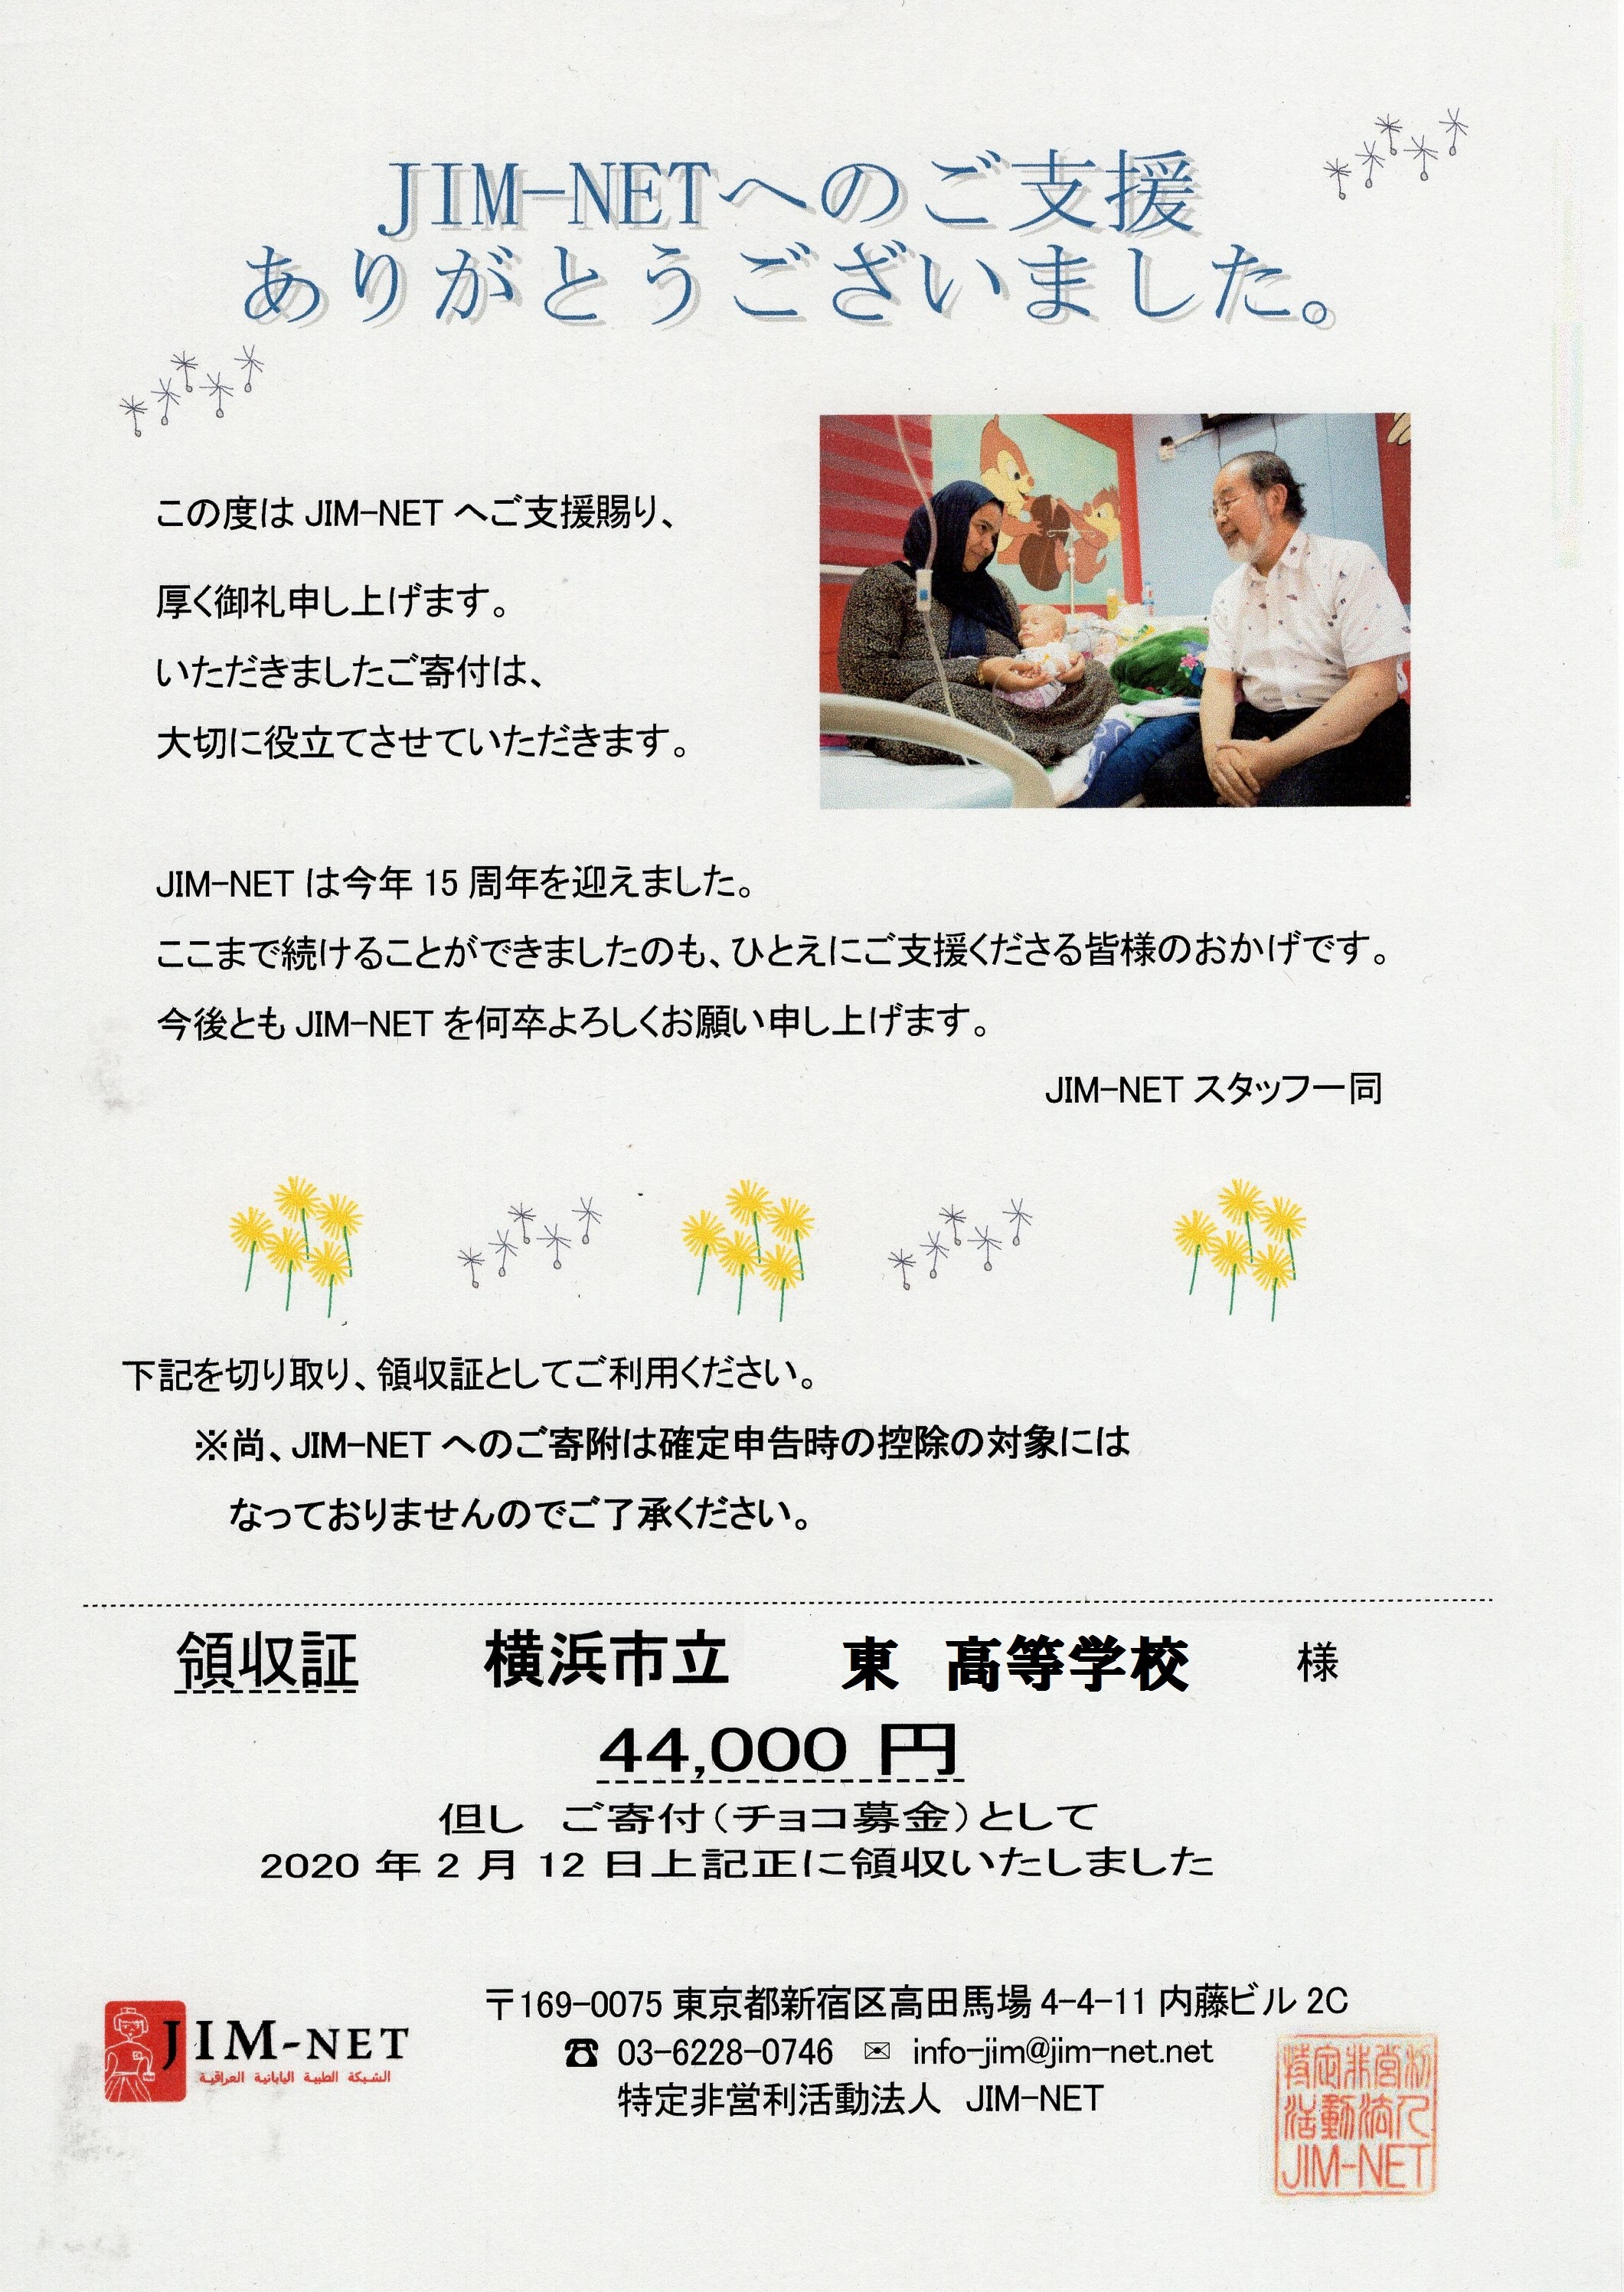 JIM-NETへのご支援
ありがとうございました。
この度は JIM-NET へご支援賜り、
厚く御礼申し上げます。
いただきましたご寄付は、
大切に役立てさせていただきます。
JIM-NET は今年 15 周年を迎えました。
ここまで続けることができましたのも、ひとえにご支援くださる皆様のおかげです。
今後とも JIM-NET を何卒よろしくお願い申し上げます。
JIM-NET スタッフ一同
下記を切り取り、領収証としてご利用ください。
※尚、JIM-NET へのご寄附は確定申告時の控除の対象には
なっておりませんのでご了承ください。
領収証 横浜市立 東 高等学校 様
44,000 円
但し ご寄付(チョコ募金)として
2020 年 2 月 12 日上記正に領収いたしました
〒169-0075 東京都新宿区高田馬場 4-4-11 内藤ビル 2C
☎ 03-6228-0746 ✉ info-jim@jim-net.net
特定非営利活動法人 JIM-NET
JIM-NET
الشبكة الطبية اليابانية العراقية
特定非営利
活動法人
JIM-NET